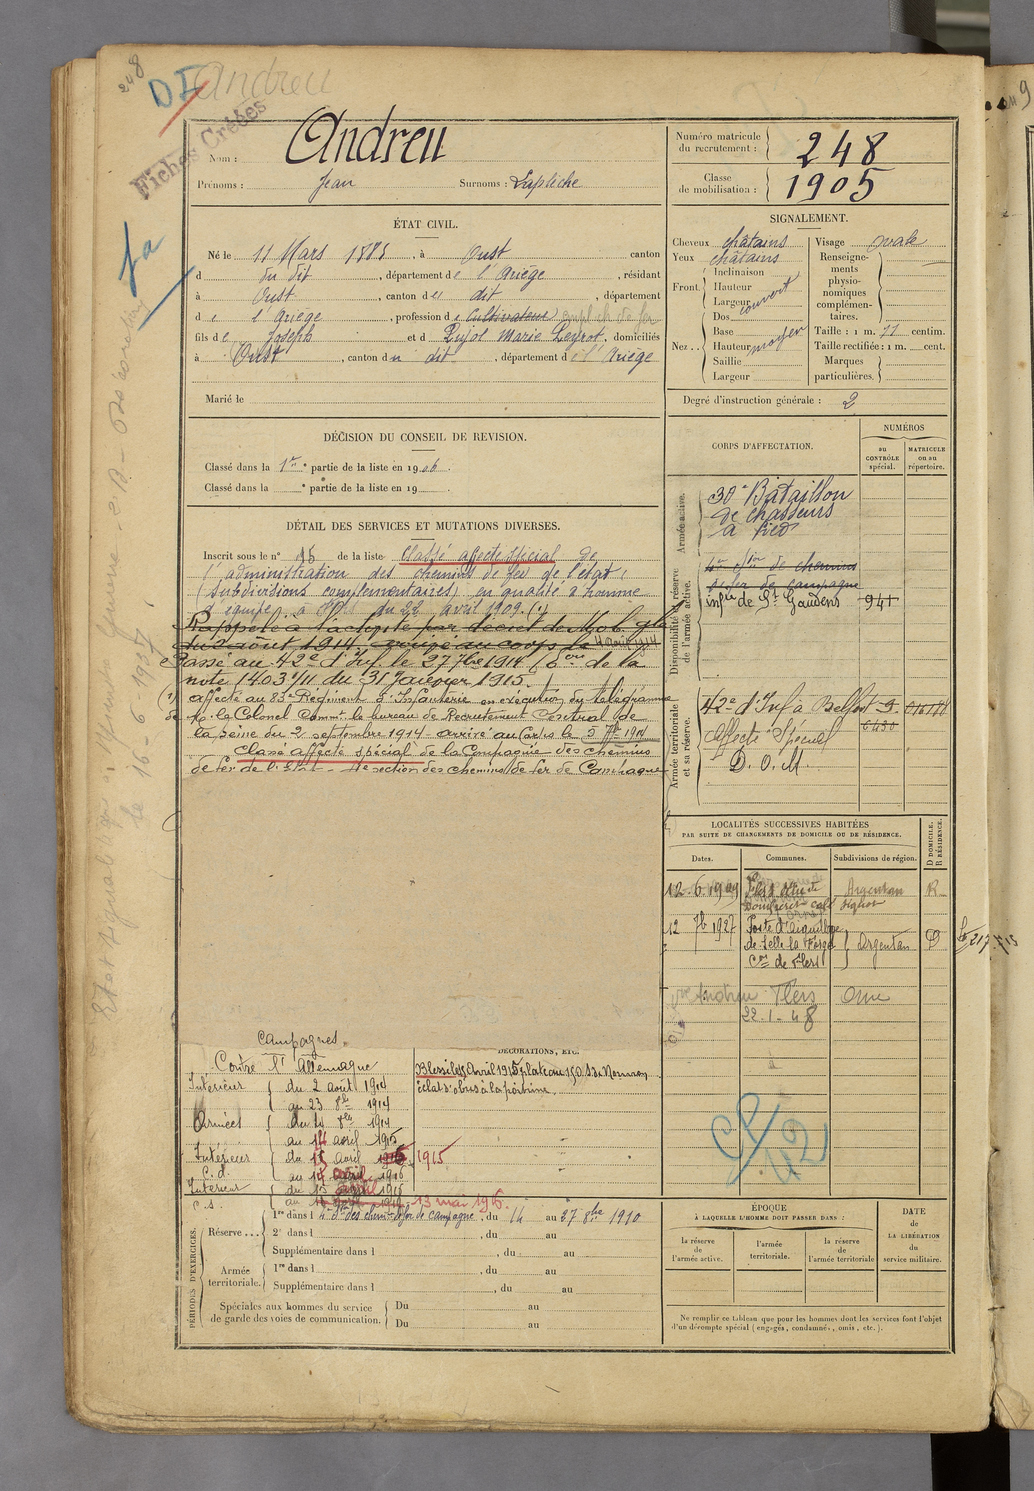 248
D I
Andreu
Fiches Créées
Nom : Andreu
Prénoms : Jean Surnoms : Laplèche
Numéro matricule du recrutement : 248
Classe de mobilisation : 1905
ÉTAT CIVIL.
Né le 11 Mars 1885, à Oust canton
d du dit, département de l'Ariège, résidant
à Oust, canton du dit, département
de l'Ariège, profession de Cultivateur
fils de Joseph et d Pujol Marie, domiciliés
à Oust, canton du dit, département de l'Ariège
Marié le
SIGNALEMENT.
Cheveux châtains
Yeux châtains
Front. Inclinaison
Hauteur
Largeur couvert
Nez.. Dos
Base
Hauteur moyen
Saillie
Largeur
Visage ovale
Renseignements physionomiques complémentaires.
Taille : 1 m. 71 centim.
Taille rectifiée : 1 m. cent.
Marques particulières.
Degré d'instruction générale : 2
DÉCISION DU CONSEIL DE REVISION.
Classé dans la 1re partie de la liste en 1906.
Classé dans la e partie de la liste en 19
DÉTAIL DES SERVICES ET MUTATIONS DIVERSES.
Inscrit sous le n° 95 de la liste Classé affecté spécial de
l'administration des chemins de fer de l'état,
(subdivisions complémentaires) en qualité d'homme
d'équipe, à du 22 avril 1909. (1)
Rappelé à l'activité par décret de Mob. gle
du 2 août 1914 arrivé au corps le 4 août 1914
Passé au 42e d'Inf. le 27 7bre 1914 de la
note 1403/11 du 31 Janvier 1915.
(1) affecté au 83e Régiment d'Infanterie en exécution du télégramme
de M. le Colonel Commt le bureau de Recrutement Central de
la Seine du 2 septembre 1914 - arrivé au Corps le 5 7bre 1914
Classé affecté spécial de la Compagnie des chemins
de fer de l'État - 4e section des chemins de fer de Campagne
CORPS D'AFFECTATION.
NUMÉROS
au CONTRÔLE spécial.
MATRICULE ou au répertoire.
Armée active.
30e Bataillon
de chasseurs
à pied
Disponibilité et réserve de l'armée active.
4e Son de chemins
de fer de campagne
infie de St Gaudens 941
Armée territoriale et sa réserve.
42e d'Inf à Belfort
Affecté Spécial
D. O. M.
LOCALITÉS SUCCESSIVES HABITÉES
PAR SUITE DE CHANGEMENTS DE DOMICILE OU DE RÉSIDENCE.
Dates. Communes. Subdivisions de région. D DOMICILE. R RÉSIDENCE.
12.6.1909 Argentan R
12 7b 1927 Poste d'aiguillage
de Selle la Forge Argentan D
Cne de Flers
Andreu Flers Orne
22-1-48
Campagnes
Contre l'Allemagne
Intérieur du 2 août 1914
au 23 8bre 1914
Armées du 24 8bre 1914
au 14 avril 1915
Intérieur du 15 avril 1915
C.d.
Intérieur
C.s. 13 mai 1916.
DÉCORATIONS, ETC.
Blessé le Avril 1915 plateau
éclat d'obus à la poitrine.
CP/42
PÉRIODES D'EXERCICES.
Réserve... 1re dans l 4e Son des chem. de fer de campagne, du 14 au 27 8bre 1910
2e dans l , du au
Supplémentaire dans l , du au
Armée territoriale. 1re dans l , du au
Supplémentaire dans l , du au
Spéciales aux hommes du service de garde des voies de communication. Du au
Du au
ÉPOQUE
À LAQUELLE L'HOMME DOIT PASSER DANS :
la réserve de l'armée active.
l'armée territoriale.
la réserve de l'armée territoriale
DATE de LA LIBÉRATION du service militaire.
Ne remplir ce tableau que pour les hommes dont les services font l'objet
d'un décompte spécial (engagés, condamnés, omis, etc.).
le 16-6-1937